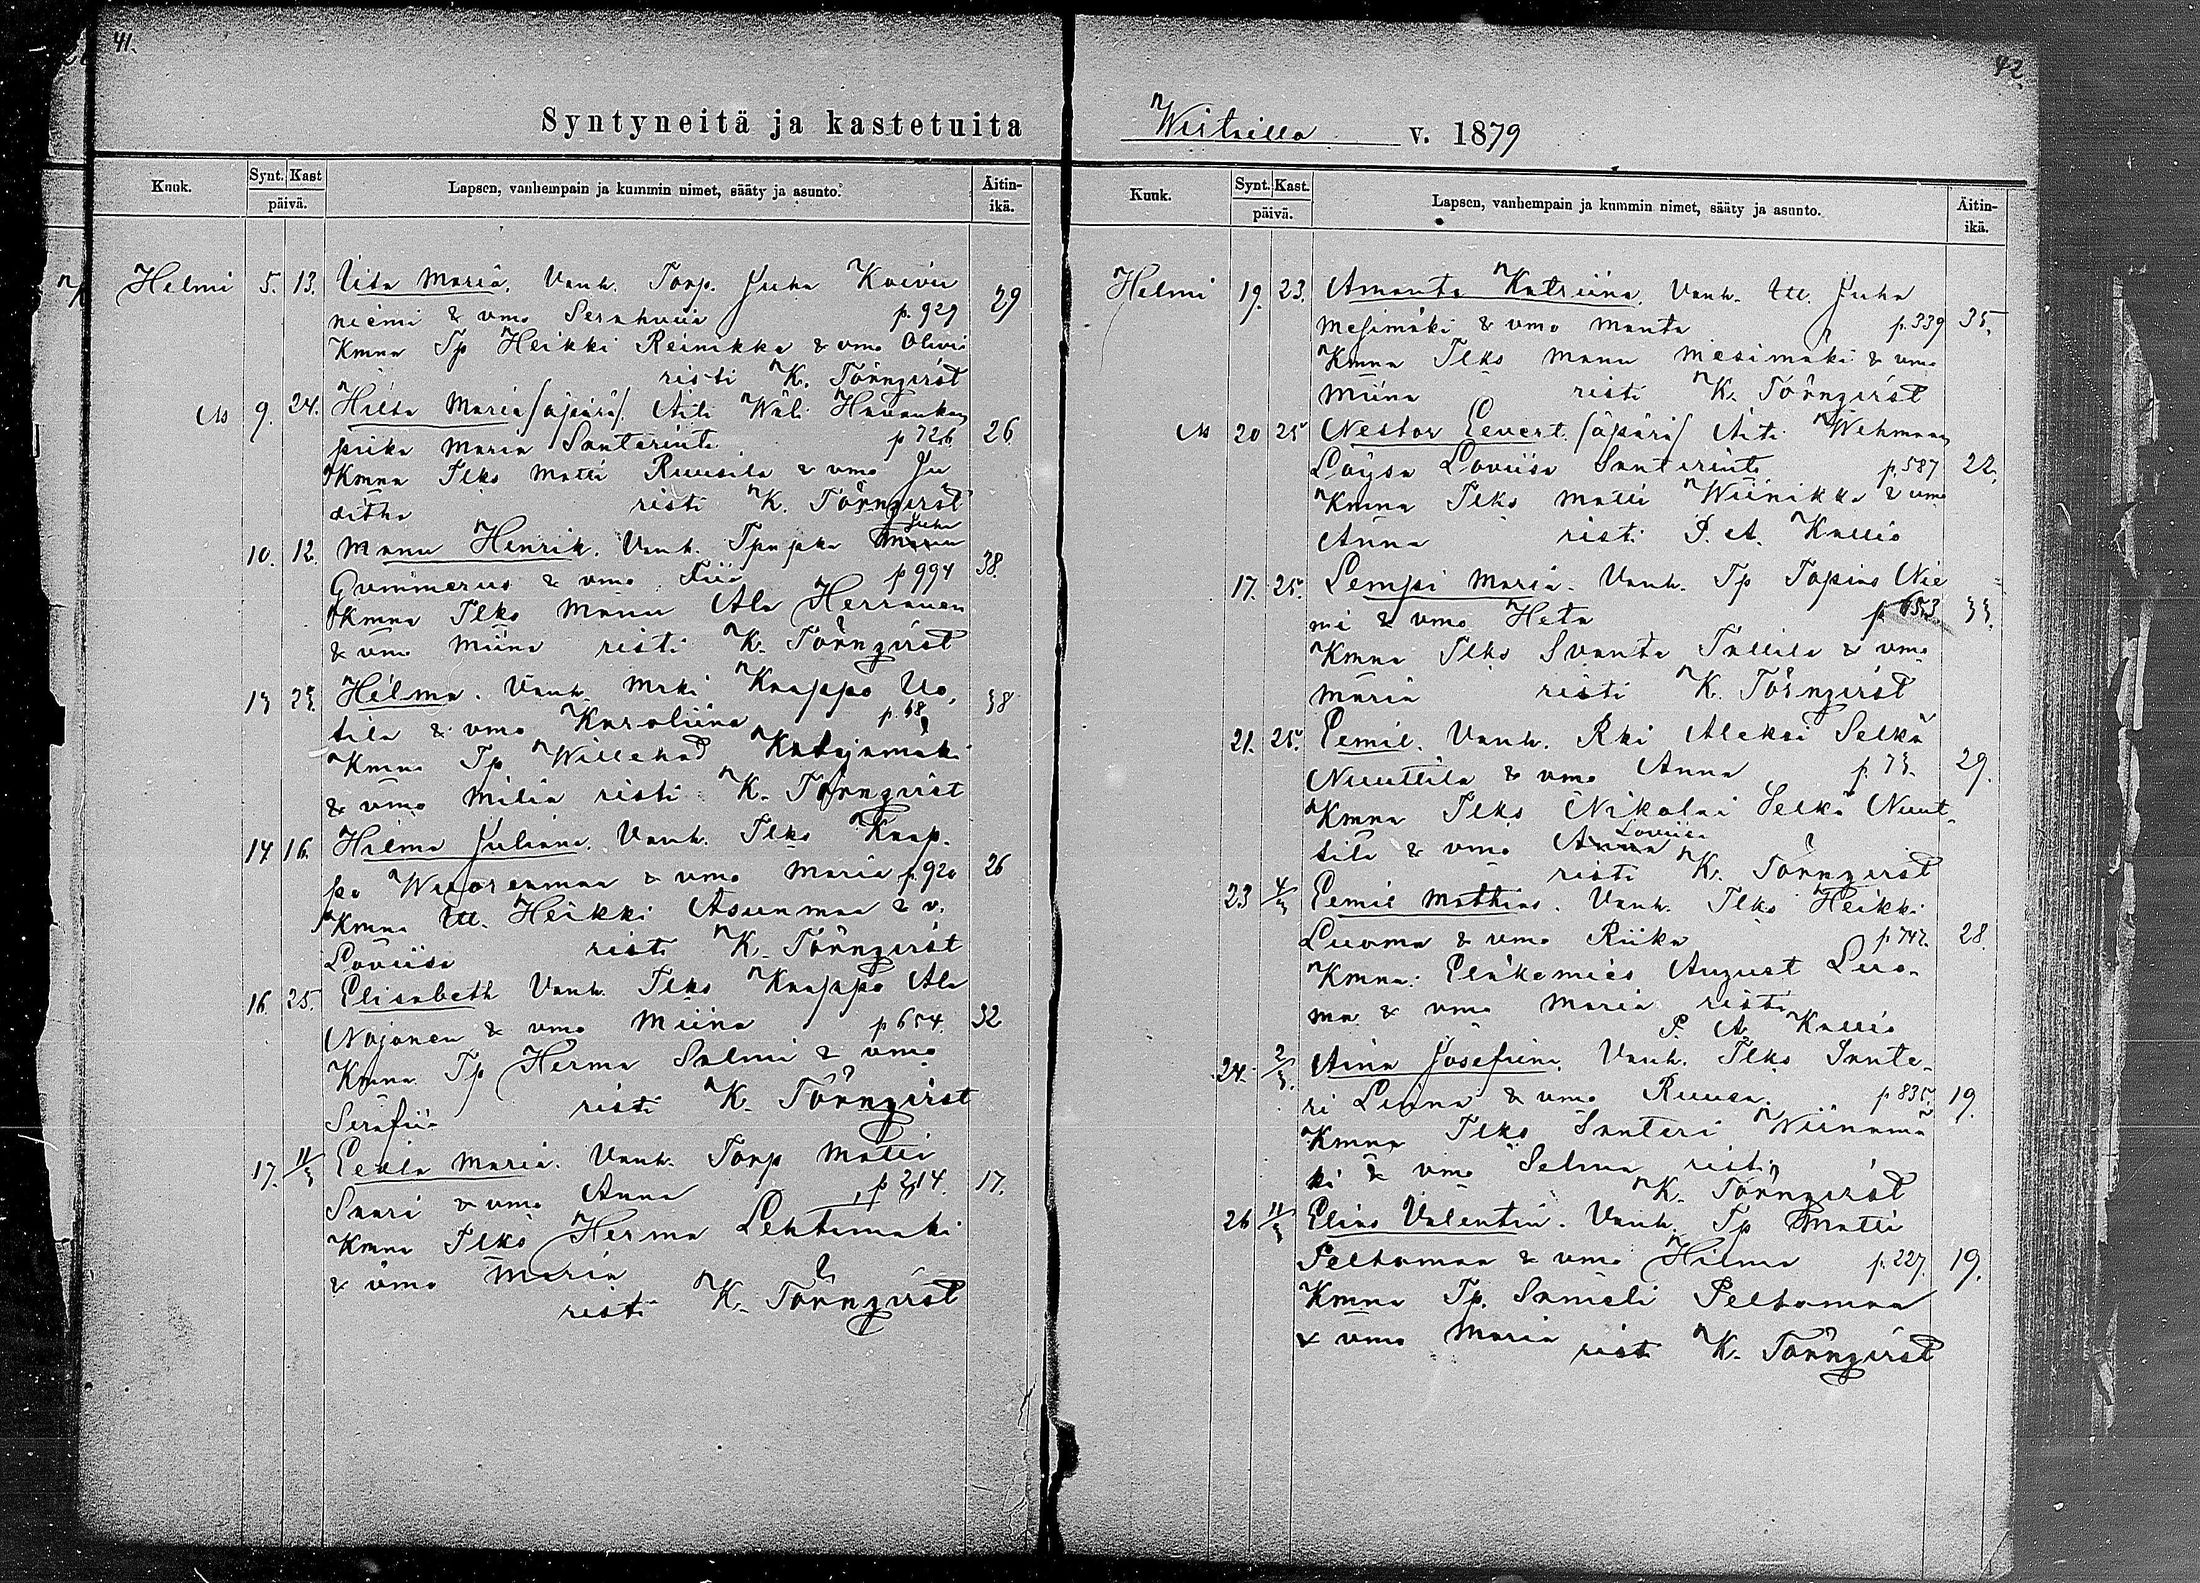 41.
Syntyneitä ja kastetuita
Kuuk. Synt. Kast päivä. Lapsen, vanhempain ja kummin nimet, sääty ja asunto. Äitin-ikä.
Helmi 5. 13. Iita Maria. Vanh. Torp. Juha Koivu
niemi & vmo Serahviia p. 929 29
Kmna Tp Heikki Reinikka & vmo Olivia
risti K. Törnqvist
Äs 9. 24. Hilta Maria /äpärä/. Äiti Wäli Havunkan
piika Maria Santerint. p 726 26
Kmna Ilks Matti Ruusila & vmo Ju
ditha risti K. Törnqvist
10. 12. Manu Henrik. Vanh. Juha
Gummerus & vmo Fiia p 994 38.
Kmna Ilks Manu Ala Herranen
& vmo Miina risti K. Törnqvist
13 23. Hilma. Vanh. Mrki Kaappo Uo,
tila & vmo Karoliina p. 48 38
Kmna Tp Willehad Katajamäki
& vmo Milia risti K. Törnqvist
14 16. Hilma Juliana. Vanh. Ilks Kaap-
po Wuorenmaa & vmo Maria p. 920 26
Kmna Itl. Heikki Asunmaa & v.
Loviisa risti K. Törnqvist
16. 25. Elisabeth Vanh. Ilks Kaappo Ala
Nojonen & vmo Miina p 654. 32
Kmna Tp Herma Salmi & vmo
Serafiia risti K. Törnqvist
17. 11/3 Eedla Maria. Vanh. Torp Matti
Saari & vmo Anna p 214. 17.
Kmna Ilks Herma Lehtimäki
& vmo Maria
risti K. Törnqvist
42
v. 1879
Kuuk. Synt. Kast. päivä. Lapsen, vanhempain ja kummin nimet, sääty ja asunto. Äitin-ikä.
Helmi 19. 23. Amanta Katriina. Vanh. Itl. Juha
Mesimäki & vmo Manta p. 339 35.
Kmna Ilks Manu Mesimäki & vmo
Miina risti K. Törnqvist
Äs 20 25 Nestor Eevert. /äpärä/ Äiti Wehmaan
Loysa Loviisa Santerint. p. 587 22.
Kmna Ilks Matti Wiinikka & vmo
Anna risti P. A. Kallio
17. 25. Lempi Maria. Vanh. Tp Topias Nie
mi & vmo Heta p 653. 33.
Kmna Ilks Svante Tallila & vmo
Maria risti K. Törnqvist
21. 25. Eemil. Vanh. Rki Aleksi Selkä
Nuuttila & vmo Anna p. 73. 29.
Kmna Ilks Nikolai Selkä Nuut-
tila & vmo Loviisa
risti K. Törnqvist
23 4/3 Eemil Mathias. Vanh. Ilks Heikki
Luoma & vmo Riika p 747. 28.
Kmna: Eläkemies August Luo-
ma & vmo Maria risti
P. A. Kallio
24. 2/3. Aina Josefiina. Vanh. Ilks Sante-
ri Linna & vmo Ruusa. p 835. 19.
Kmna Ilks Santeri Wiinamä
ki & vmo Selma risti
K. Törnqvist
26 11/3 Elias Valentin. Vanh. Tp Matti
Peltomaa & vmo Hilma p. 227. 19.
Kmna Tp. Sameli Peltomaa
& vmo Maria risti K. Törnqvist